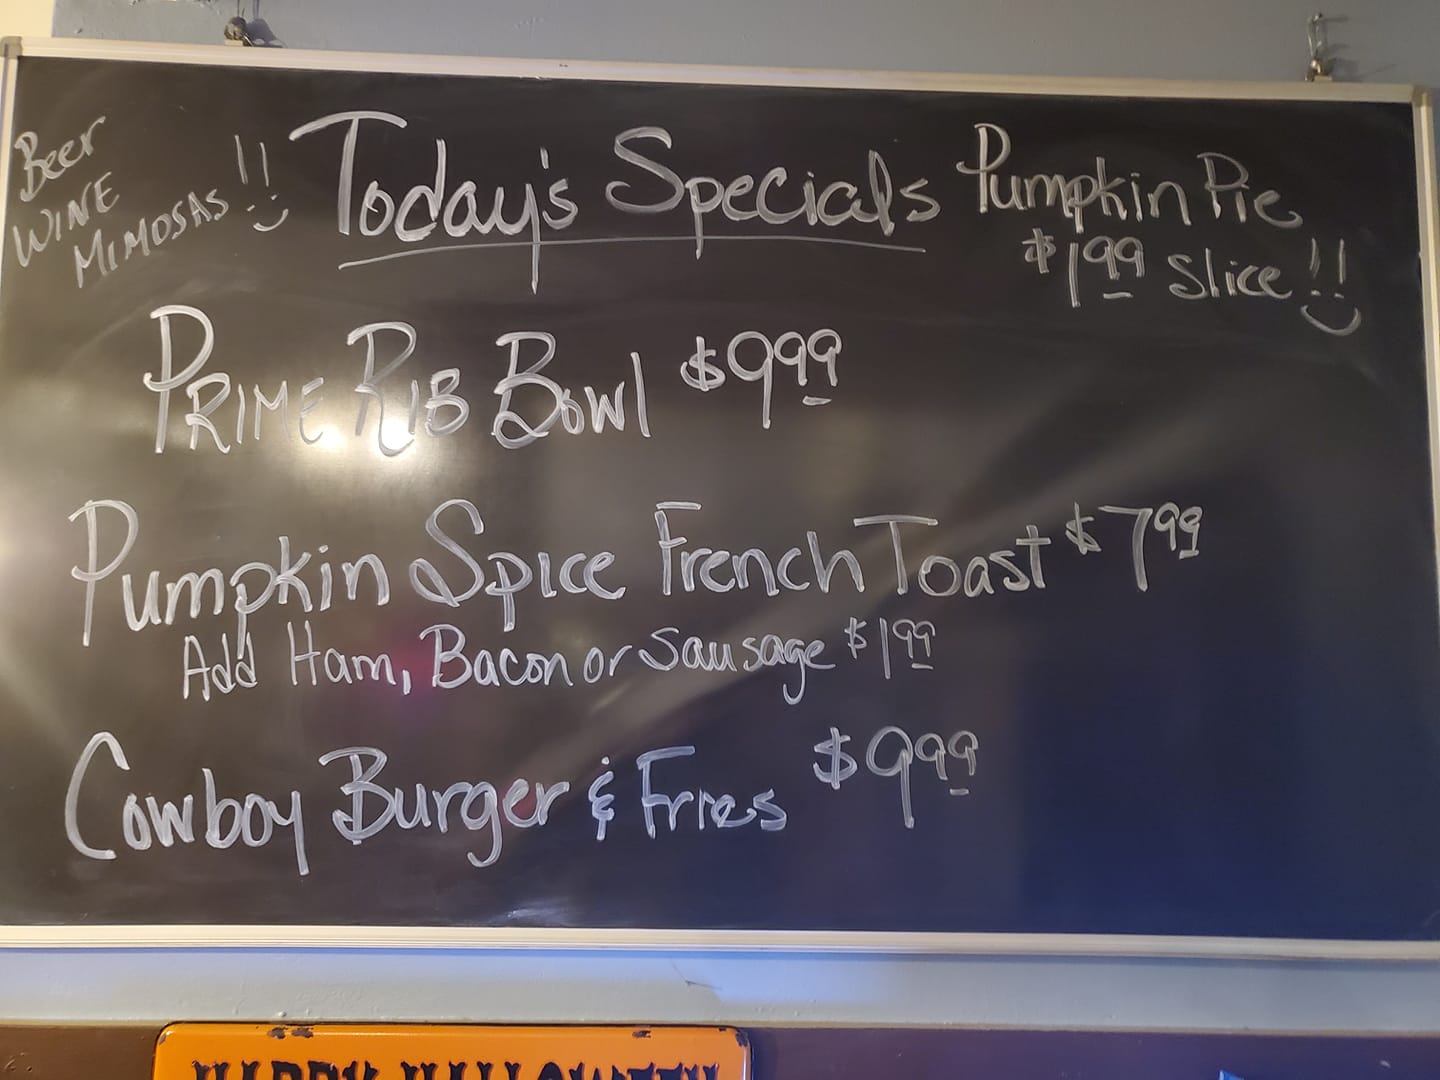 Beer
WINE
MIMOSAS!!
Today's Specials
Pumpkin Pie
$1.99 Slice!!
PRIME RIB BOWl $9.99
Pumpkin Spice French Toast $7.99
Add Ham, Bacon or Sausage $1.99
Cowboy Burger & Fries $9.99
HAPPY HALLOWEEN